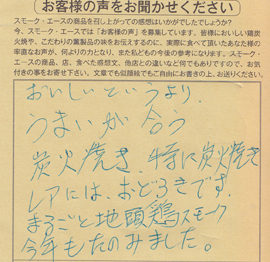 お客様の声をお聞かせください
スモーク・エースの商品を召し上がっての感想はいかがでしたでしょうか?
今、スモーク・エースでは「お客様の声」を募集しています。皆様においしい鶏炭
火焼や、こだわりの薫製品の味をお伝えするのに、実際に食べて頂いたあなた様の
率直なお声が、何よりの力となり、また私どもの今後の参考になります。スモーク・
エースの商品、店、食べた感想文、他店との違いなど何でもありですので、お気
付きの事をお寄せ下さい。文章でも似顔絵でもご自由にお書きの上、お送りください。
おいしいというより、
うまいが合う
炭火焼き、特に炭火焼き
レアには、おどろきです。
まるごと地頭鶏スモーク
今年もたのみました。